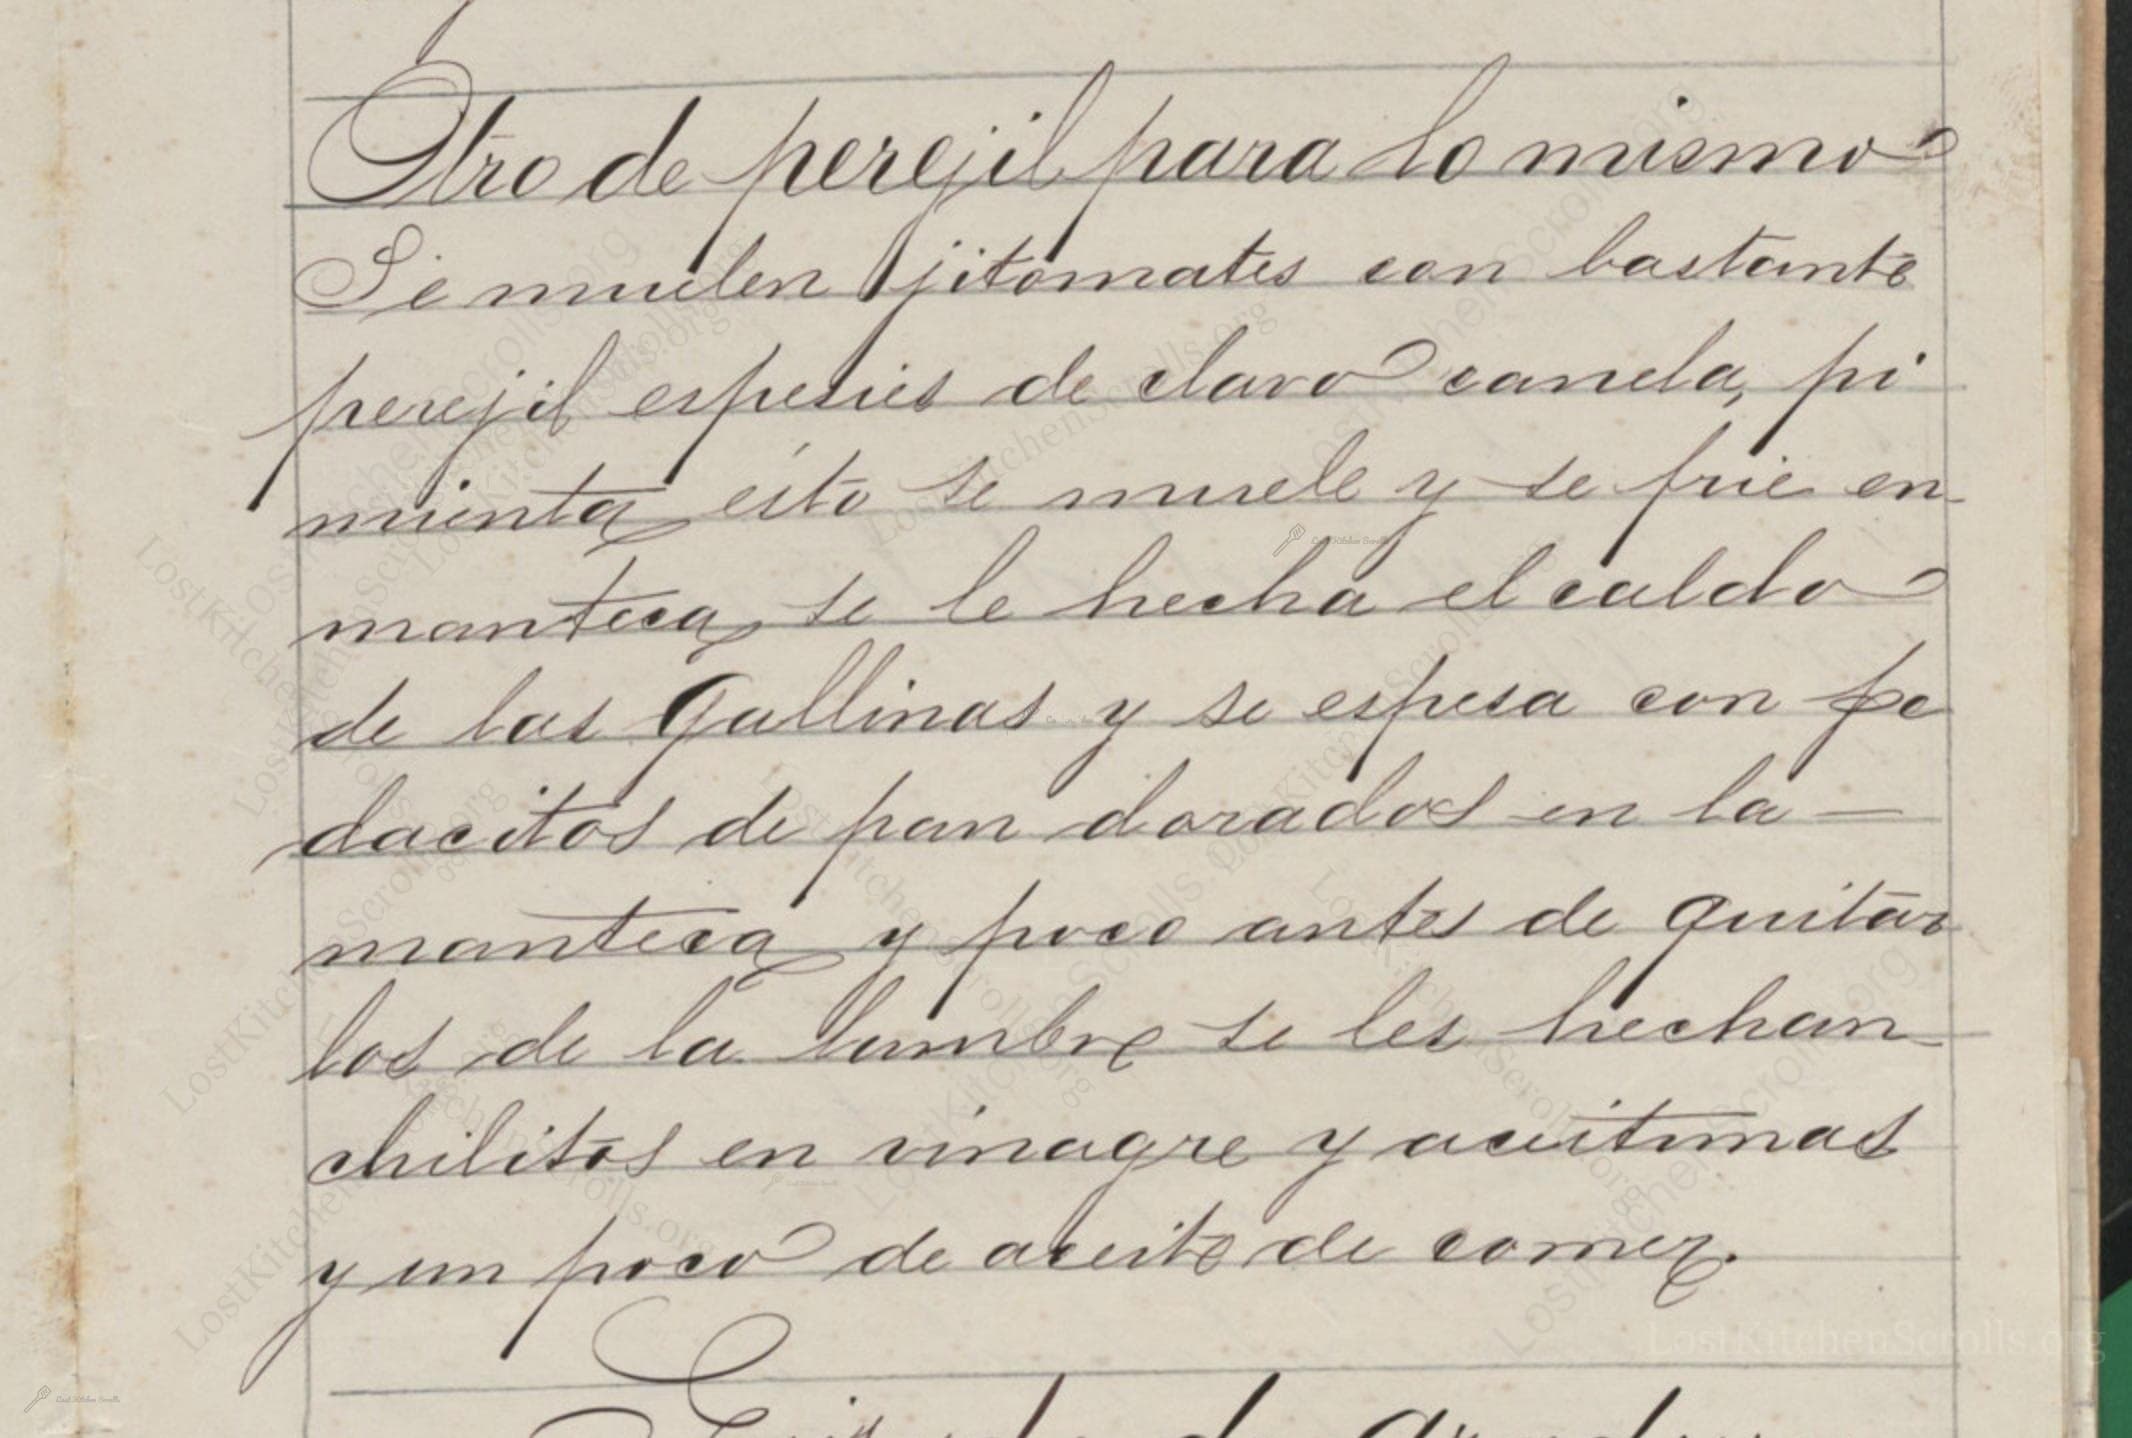 Otro de perejil para lo mismo
Se muelen jitomates con bastante
perejil espesies de clavo canela, pi
mienta, ésto se muele y se frie en
manteca, se le hecha el caldo
de las gallinas y se espesa con pe
dacitos de pan dorados en la —
manteca y poco antes de quitar
los de la lumbre se les hechan
chilitos en vinagre y aceitunas
y un poco de aceite de comer.